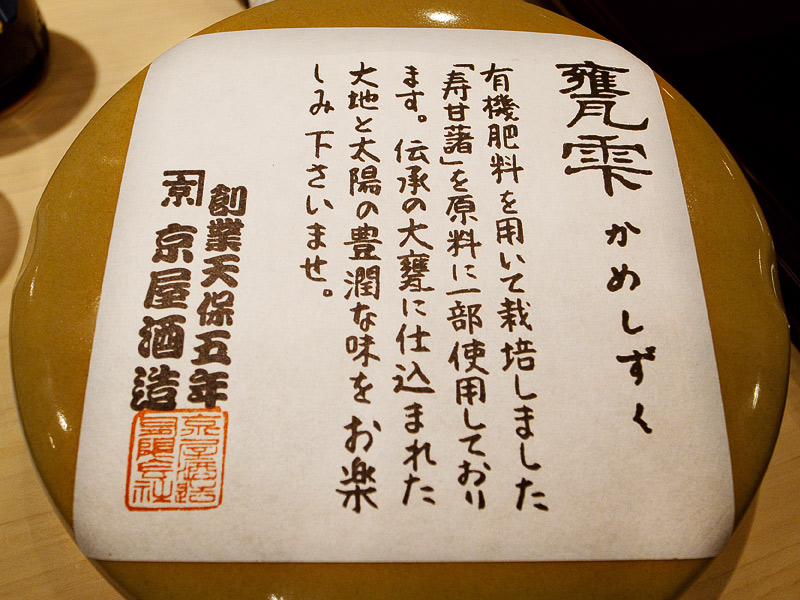 甕雫 かめしずく
有機肥料を用いて栽培しました
「寿甘藷」を原料に一部使用しており
ます。伝承の大甕に仕込まれた
大地と太陽の豊潤な味をお楽
しみ下さいませ。
創業天保五年
京 京屋酒造
京屋酒造
有限会社